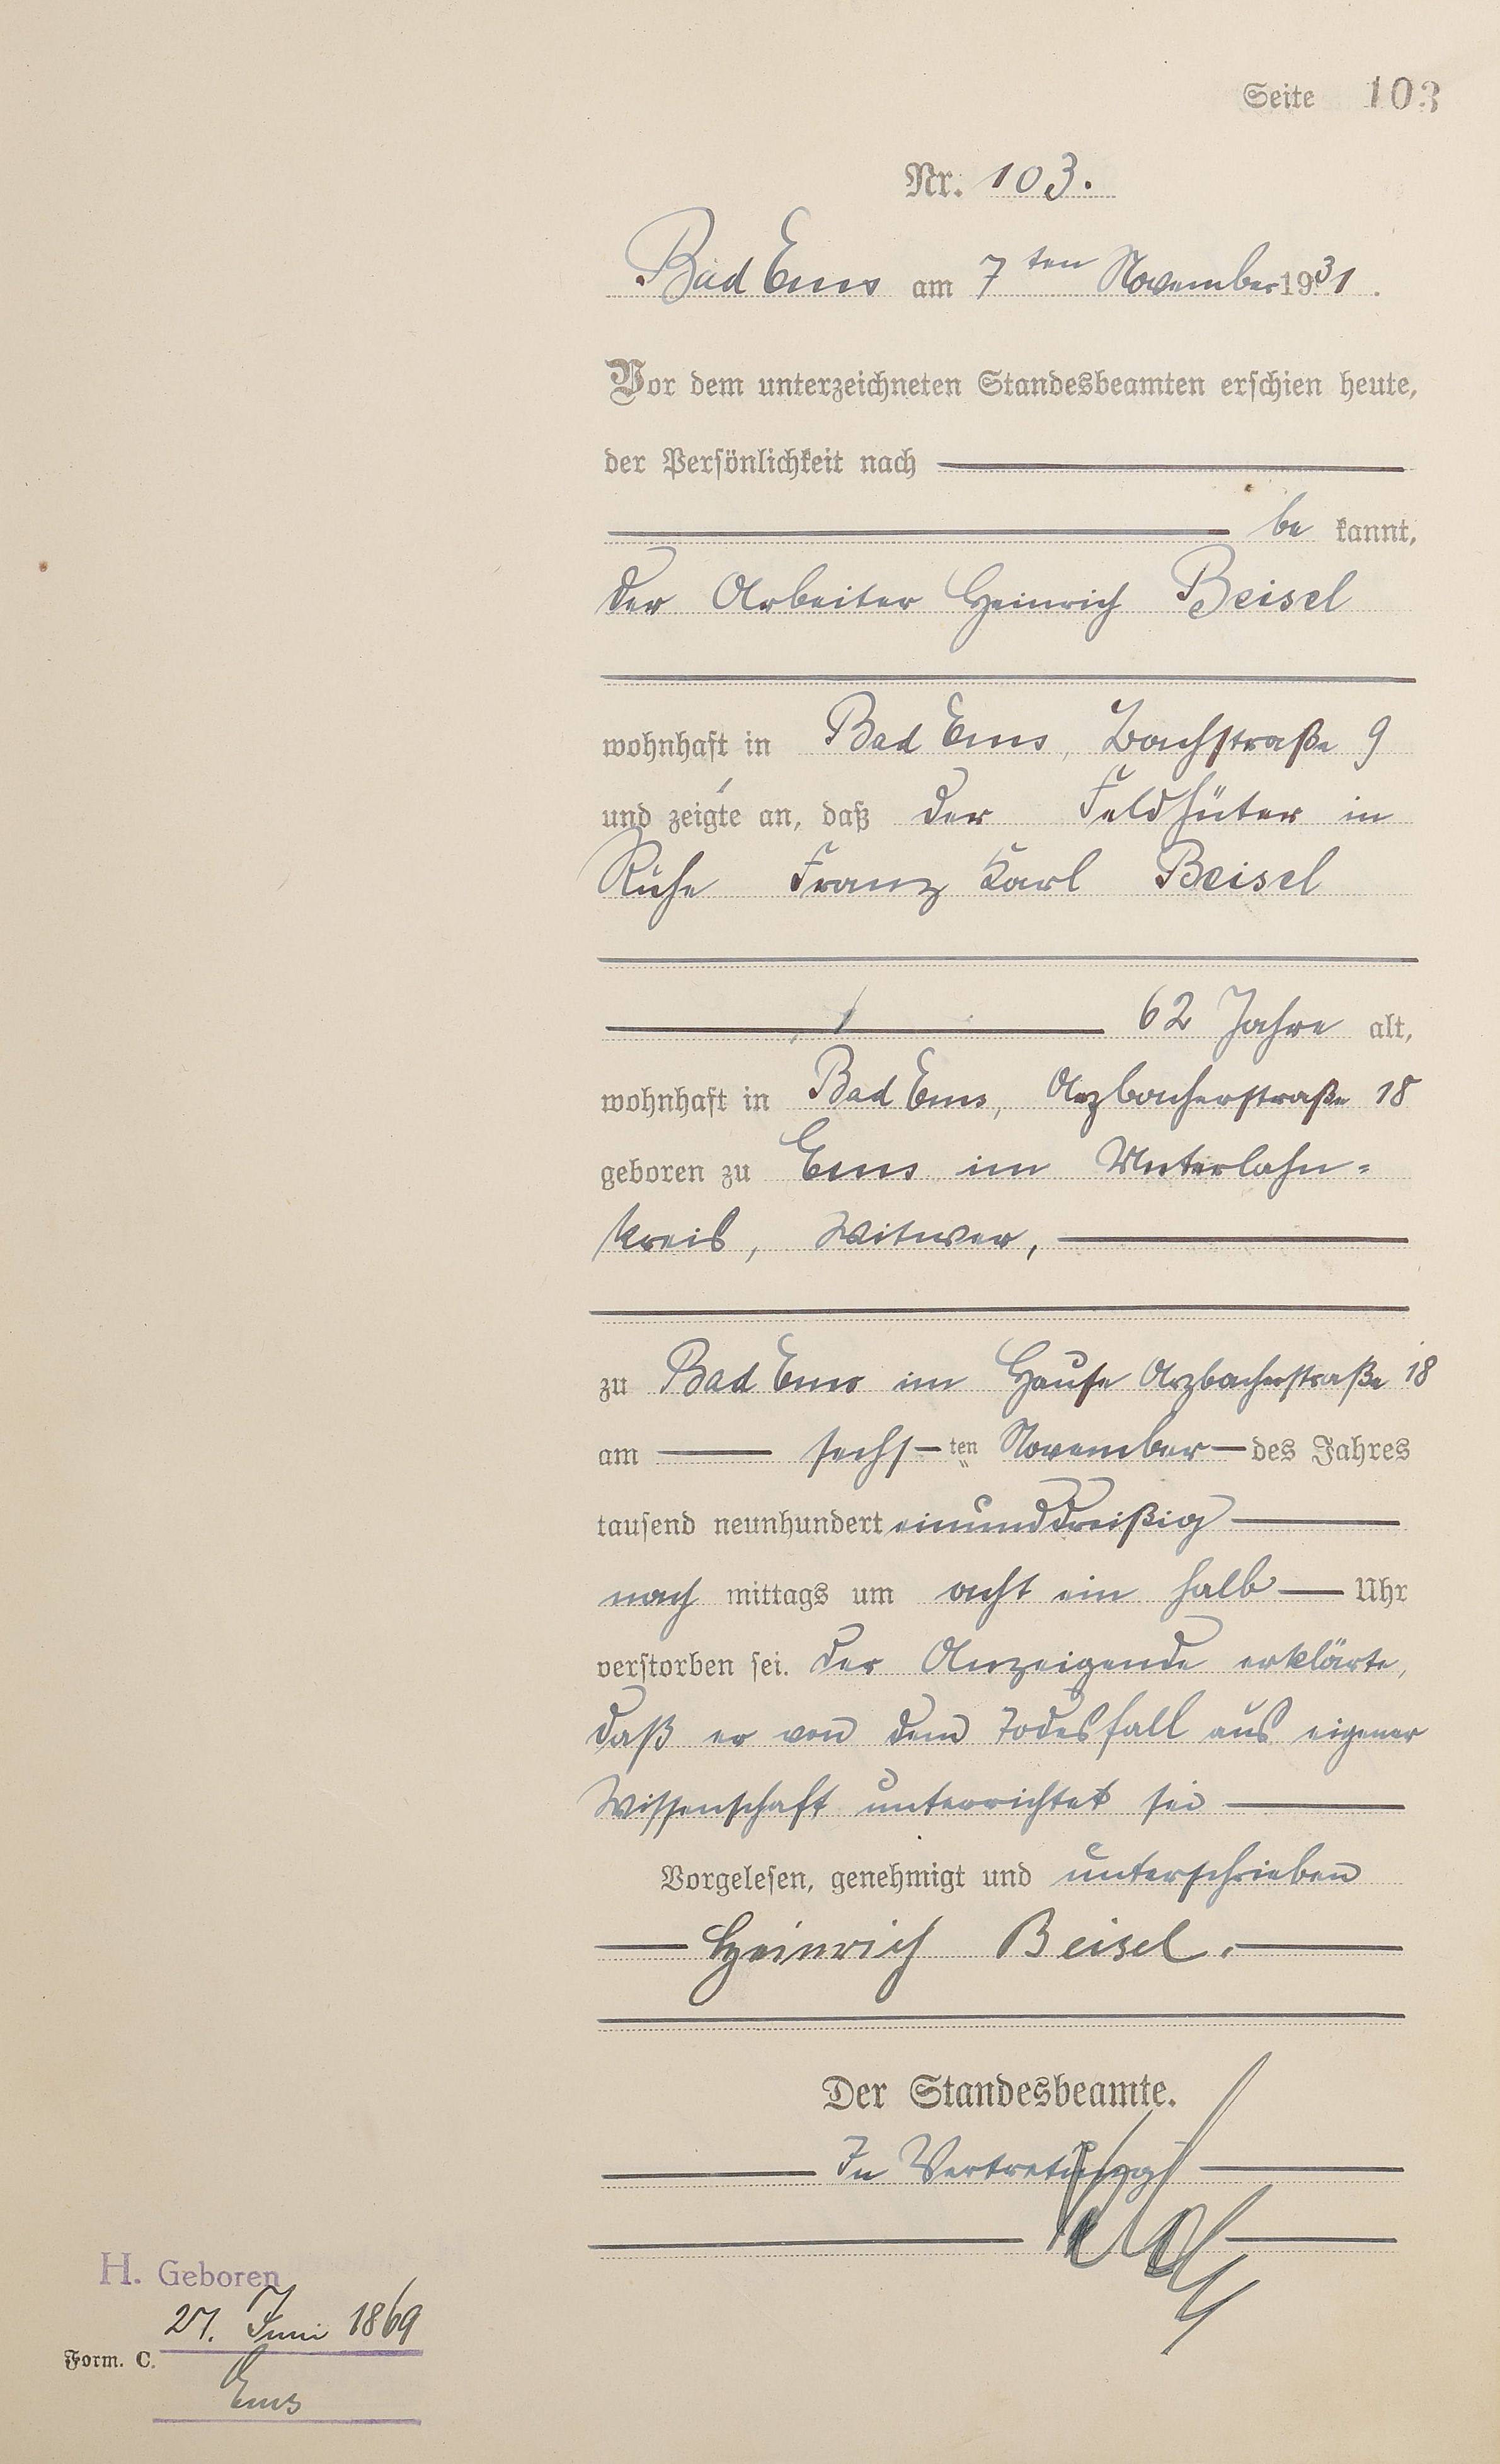 Seite 103
Nr. 103.
Bad Ems am 7ten November 1931.
Vor dem unterzeichneten Standesbeamten erschien heute,
der Persönlichkeit nach
be kannt,
der Arbeiter Heinrich Beisel
wohnhaft in Bad Ems, Bachstraße 9
und zeigte an, daß der Feldhüter in
Ruhe Franz Karl Beisel
62 Jahre alt,
wohnhaft in Bad Ems, Arzbacherstraße 18
geboren zu Ems im Unterlahn=
kreis, Witwer,
zu Bad Ems im Hause Arzbacherstraße 18
am sechs ten November des Jahres
tausend neunhundert einunddreißig
nach mittags um acht ein halb Uhr
verstorben sei. Der Anzeigende erklärte,
daß er von dem Todesfall aus eigener
Wissenschaft unterrichtet sei
Vorgelesen, genehmigt und unterschrieben
Heinrich Beisel.
Der Standesbeamte.
In Vertretung
H. Geboren
27. Juni 1869
Form. C.
Ems